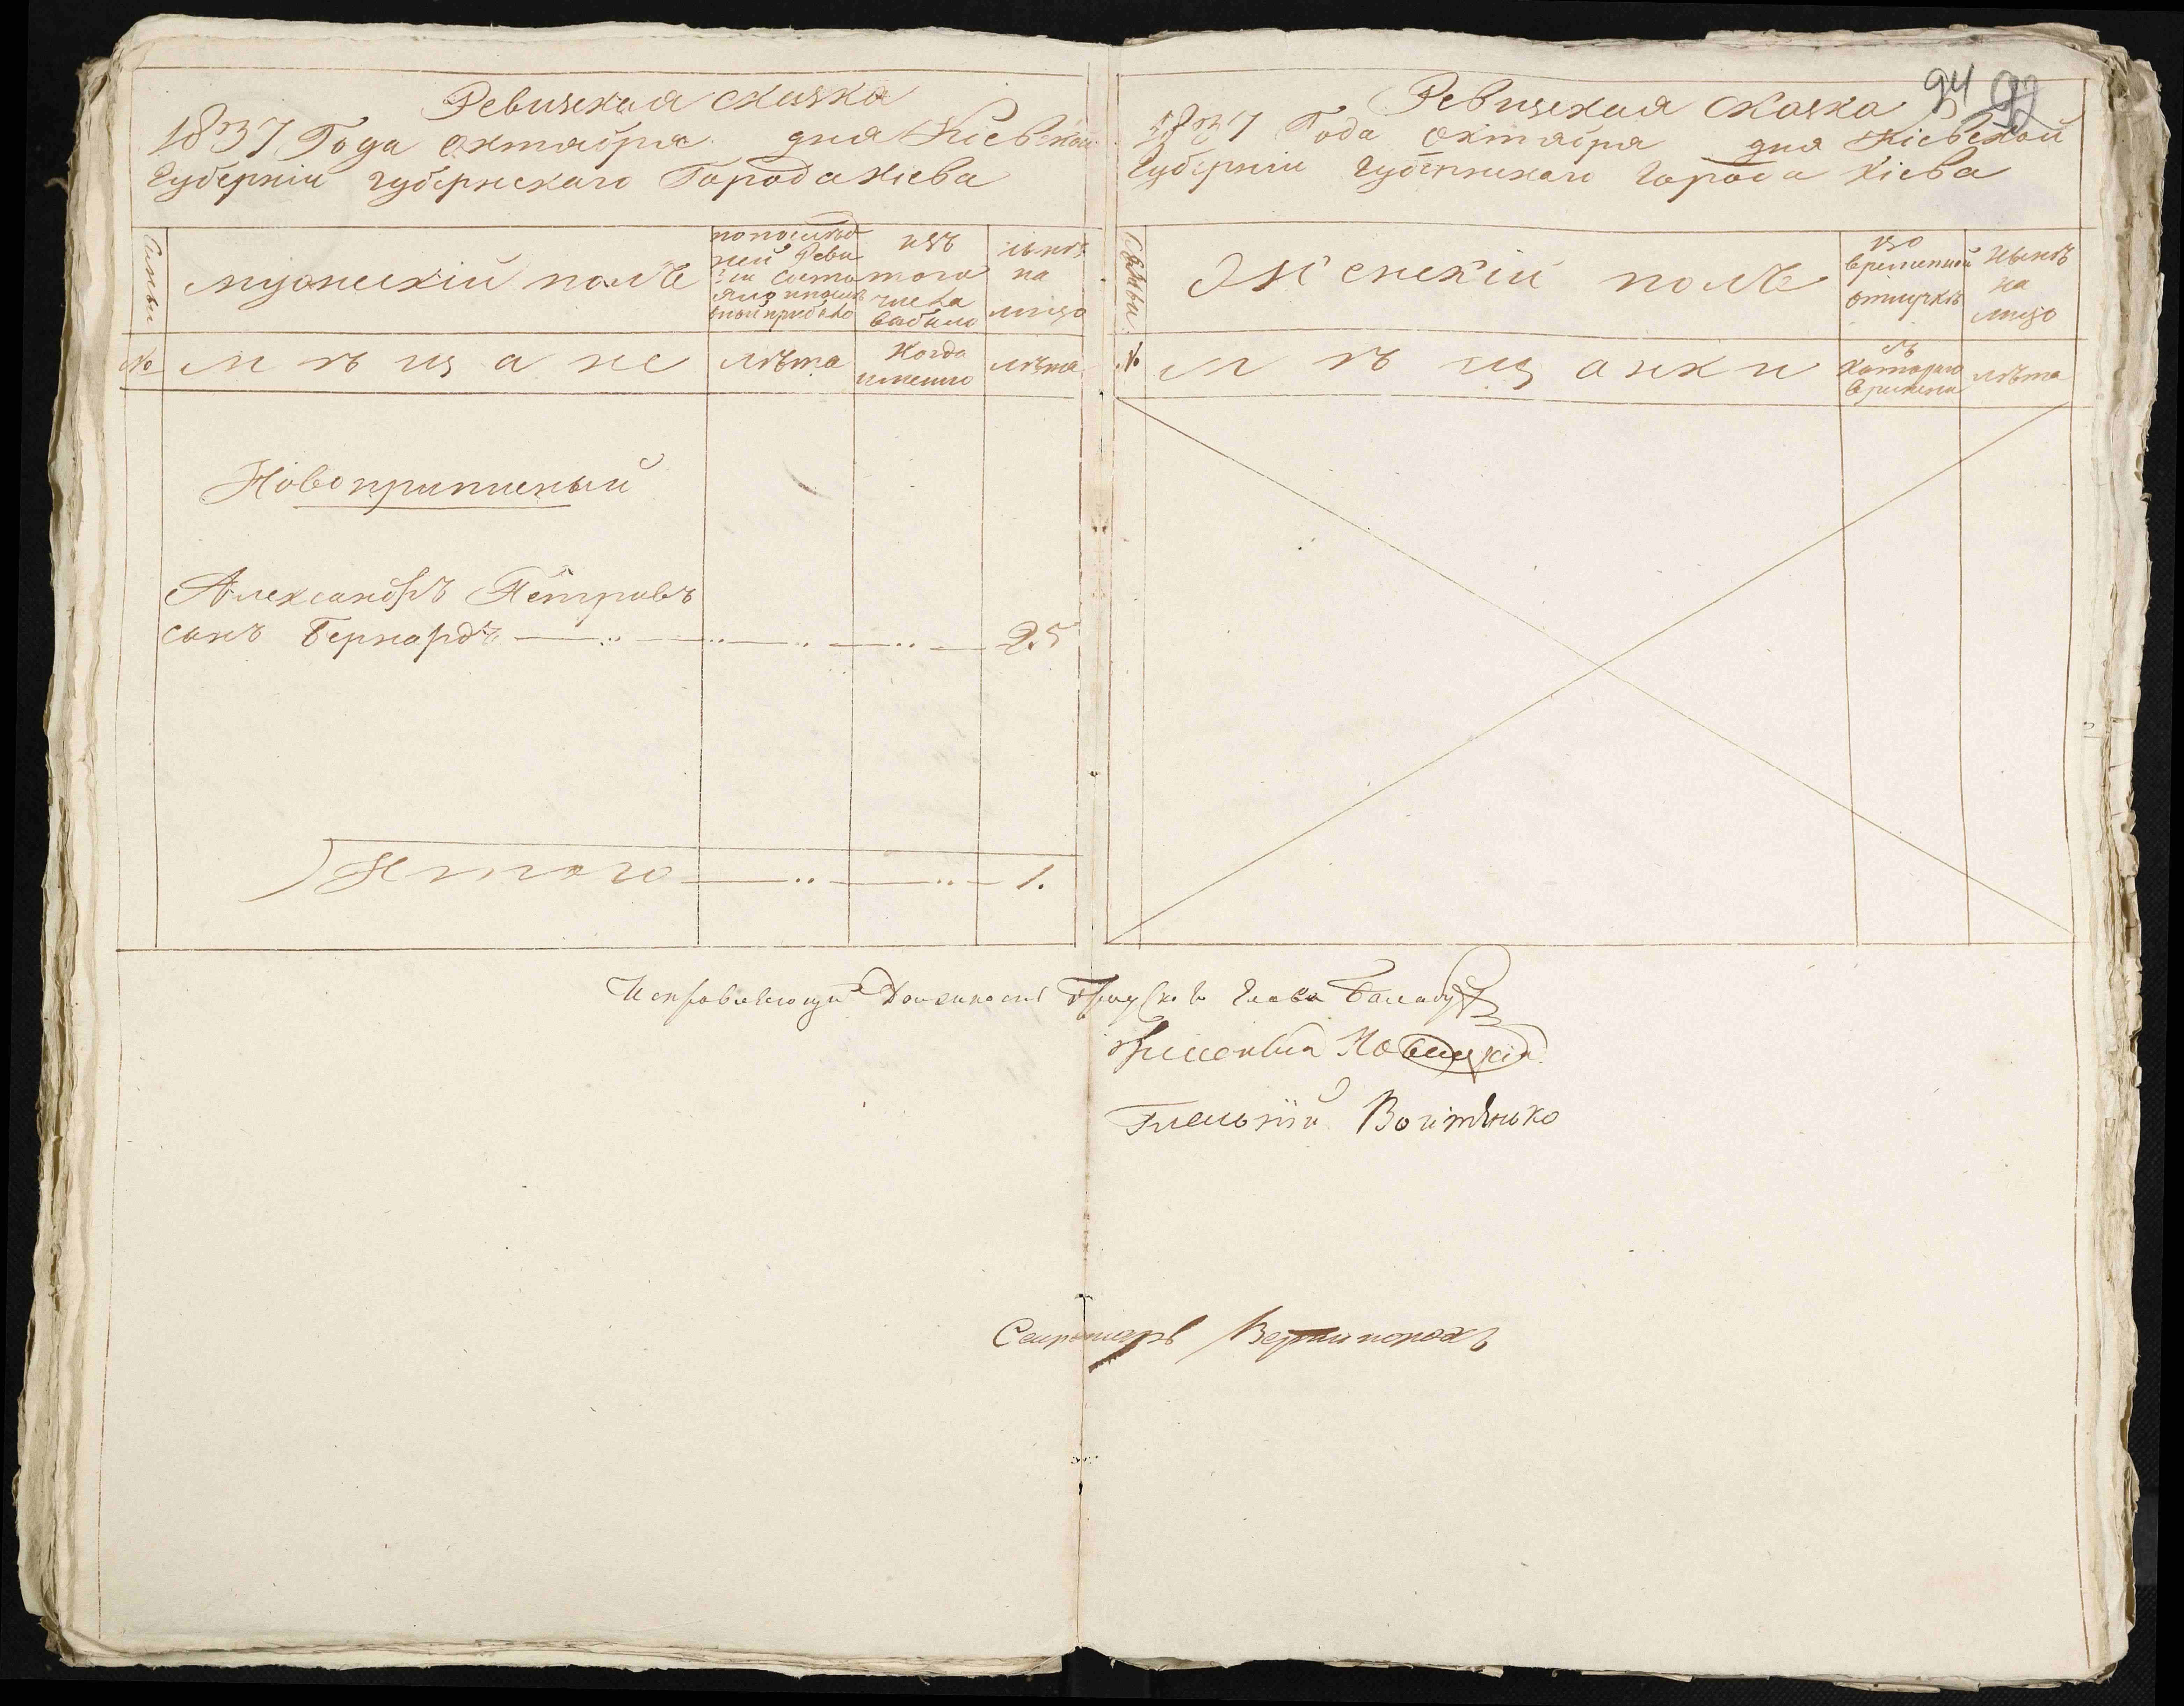 Ревизская сказка
1837 Года октября дня Кіевской
Губерніи губернскаго Города Кіева
Семьи
мужескій полъ
по послед
ней Реви
зіи состо
яло и после
оной прибыло
изъ
того
числа
выбыло
ныне
на
лицо
№
м ѣ щ а не
лѣта
Когда
именно
лѣта
Новоприписный
Александръ Петровъ
сынъ Бернардъ 25
Итого 1.
94
Ревизская сказка
1837 Года октября дня Кіевской
Губерніи Губернскаго города Кіева
Семьи
Женскій полъ
во
временной
отлучкѣ
Нынѣ
на
лицо
№
м ѣ щ анки
съ
котораго
времени
лѣта
Исправляющій Должность Градского Главы Балабуха
Гласный Новицкій
Гласный Войтенько
Секретарь